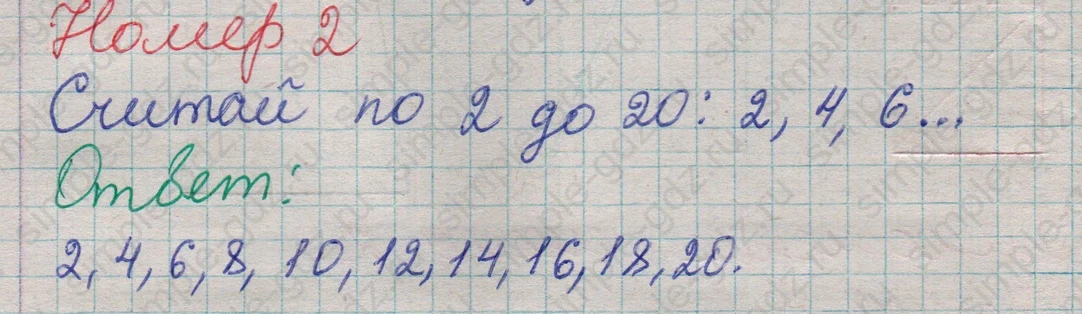 Номер 2
Считай по 2 до 20: 2, 4, 6...
Ответ:
2, 4, 6, 8, 10, 12, 14, 16, 18, 20.